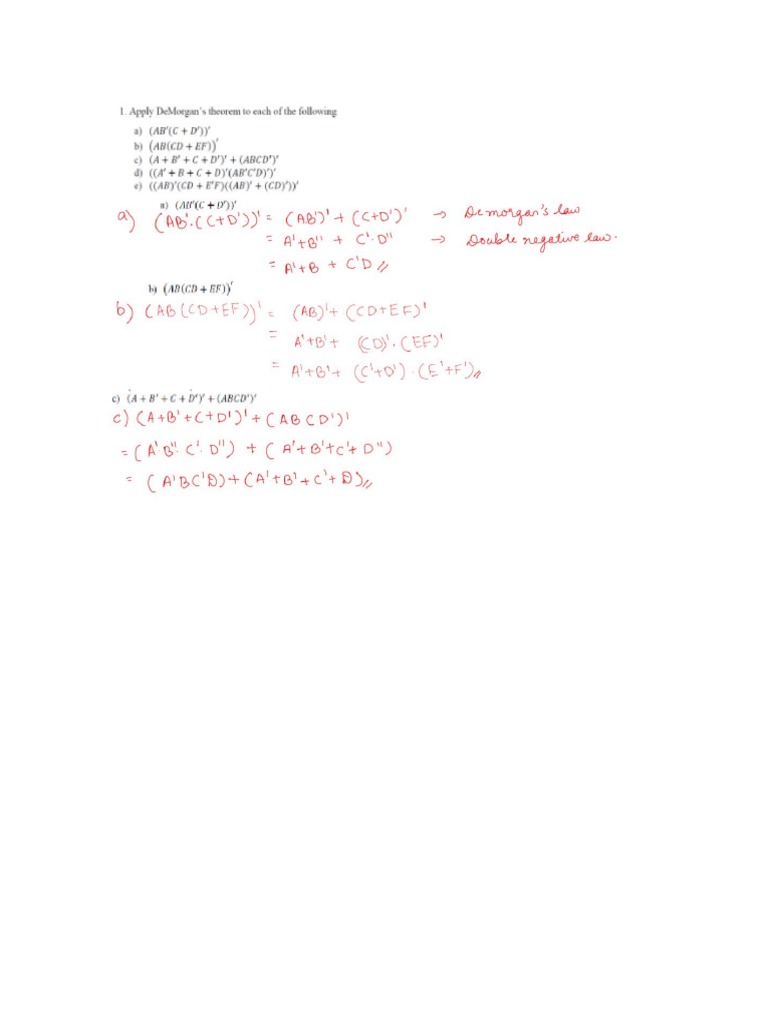 1. Apply DeMorgan's theorem to each of the following
a) (AB'(C + D'))'
b) (AB(CD + EF))'
c) (A + B' + C + D')' + (ABCD')'
d) ((A' + B + C + D)'(AB'C'D)')'
e) ((AB)'(CD + E'F)((AB)' + (CD)'))'
a) (AB'(C + D'))'
a) (AB'.(C+D'))' = (AB')' + (C+D')' → Demorgan's law
= A'+B'' + C'.D'' → Double negative law.
= A'+B + C'D //
b) (AB(CD + EF))'
b) (AB(CD+EF))' = (AB)'+(CD+EF)'
= A'+B'+ (CD)'.(EF)'
= A'+B'+ (C'+D').(E'+F')//
c) (A + B' + C + D')' + (ABCD')'
c) (A+B'+C+D')'+(ABCD')'
=(A'.B''.C'.D'') + (A'+B'+C'+D'')
= (A'BC'D)+(A'+B'+C'+D)//